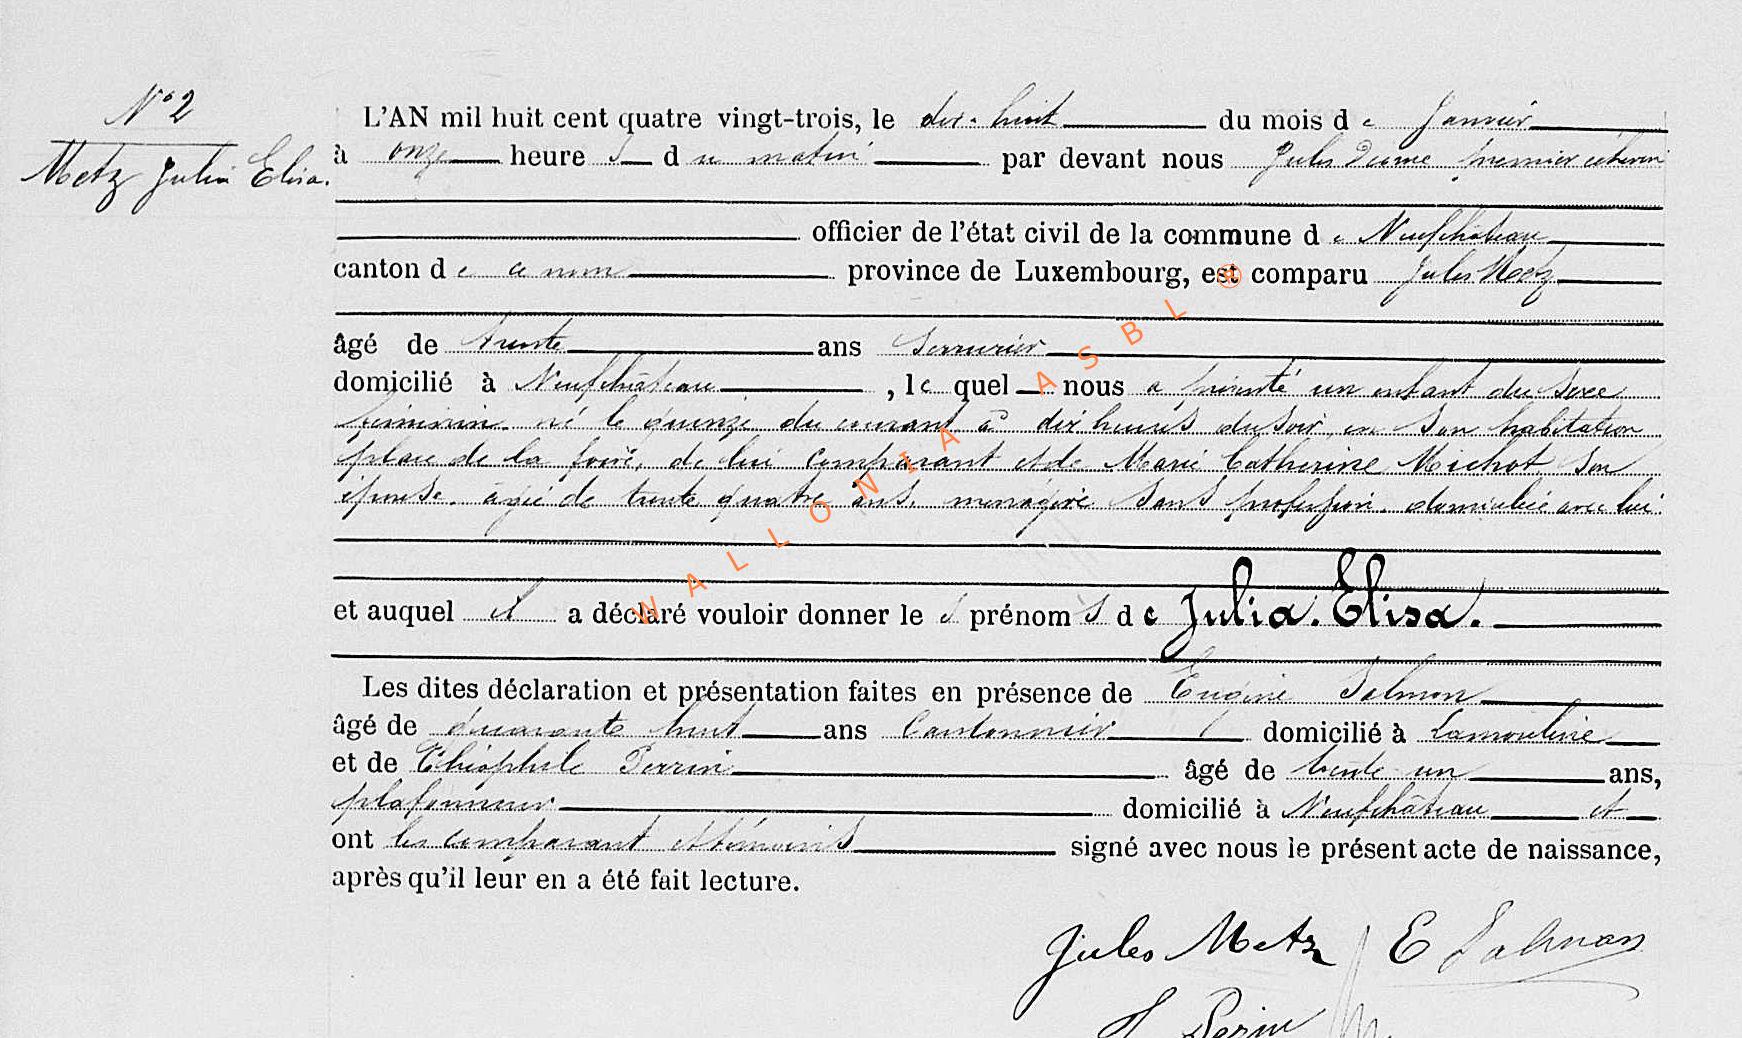 N° 2
Metz Julia Elisa.
L'AN mil huit cent quatre vingt-trois, le dix-huit du mois de Janvier
à onze heures du matin par devant nous Jules premier échevin
officier de l'état civil de la commune de Neufchâteau
canton de ce nom province de Luxembourg, est comparu Jules Metz
âgé de trente ans Serrurier
domicilié à Neufchâteau, lequel nous a présenté un enfant du sexe
féminin né le quinze du courant à dix heures du soir, en son habitation
place de la foire, de lui comparant et de Marie Catherine Michot son
épouse, âgée de trente quatre ans, menagère sans profession, domiciliée avec lui.
et auquel il a déclaré vouloir donner les prénoms de Julia. Elisa.
Les dites déclaration et présentation faites en présence de Eugène Salmon
âgé de quarante huit ans Cantonnier domicilié à Lamouline
et de Théophile Perrin âgé de trente un ans,
plafonneur domicilié à Neufchâteau et
ont les comparant et témoins signé avec nous le présent acte de naissance,
après qu'il leur en a été fait lecture.
Jules Metz E Salmon
Perin
WALLONIA ASBL ®